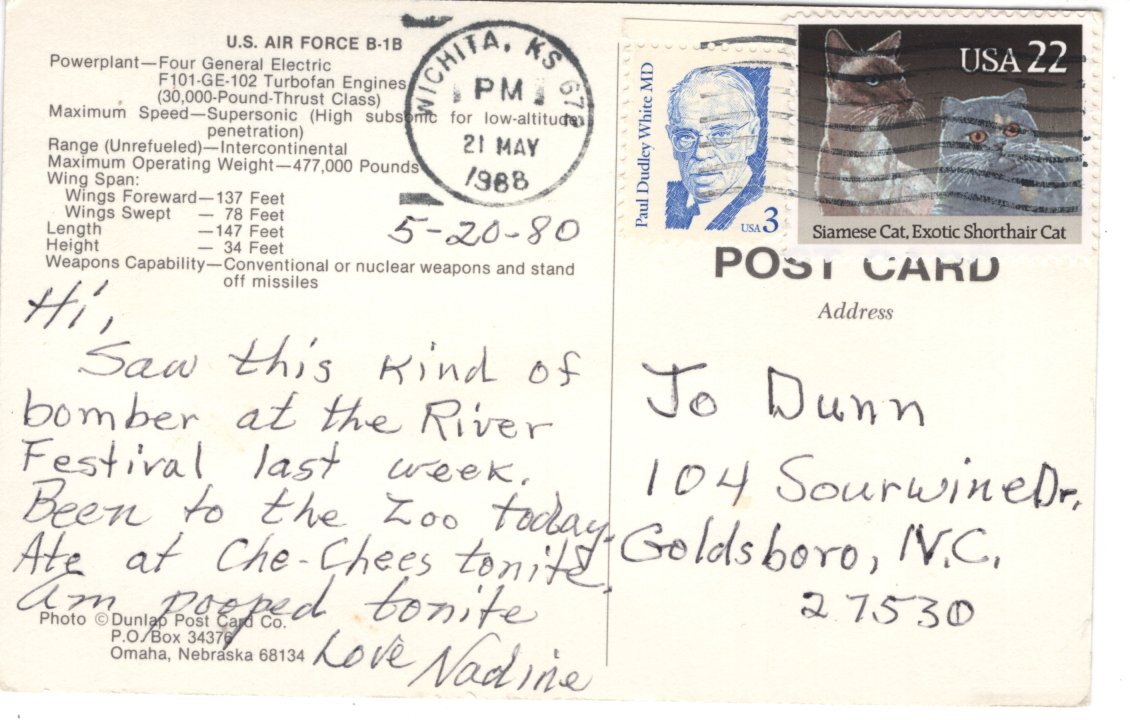 U.S. AIR FORCE B-1B
Powerplant—Four General Electric
F101-GE-102 Turbofan Engines
(30,000-Pound-Thrust Class)
Maximum Speed—Supersonic (High subsonic for low-altitude
penetration)
Range (Unrefueled)—Intercontinental
Maximum Operating Weight—477,000 Pounds
Wing Span:
Wings Foreward—137 Feet
Wings Swept — 78 Feet
Length —147 Feet
Height — 34 Feet
Weapons Capability—Conventional or nuclear weapons and stand
off missiles
WICHITA, KS
PM
21 MAY
1988
5-20-80
Paul Dudley White MD
USA 3
USA 22
Siamese Cat, Exotic Shorthair Cat
POST CARD
Address
Hi,
Saw this kind of
bomber at the River
Festival last week.
Been to the Zoo today.
Ate at Che-Chees tonite.
Am pooped tonite
Love Nadine
Photo © Dunlap Post Card Co.
P.O. Box 34376
Omaha, Nebraska 68134
Jo Dunn
104 Sourwine Dr.
Goldsboro, N.C.
27530